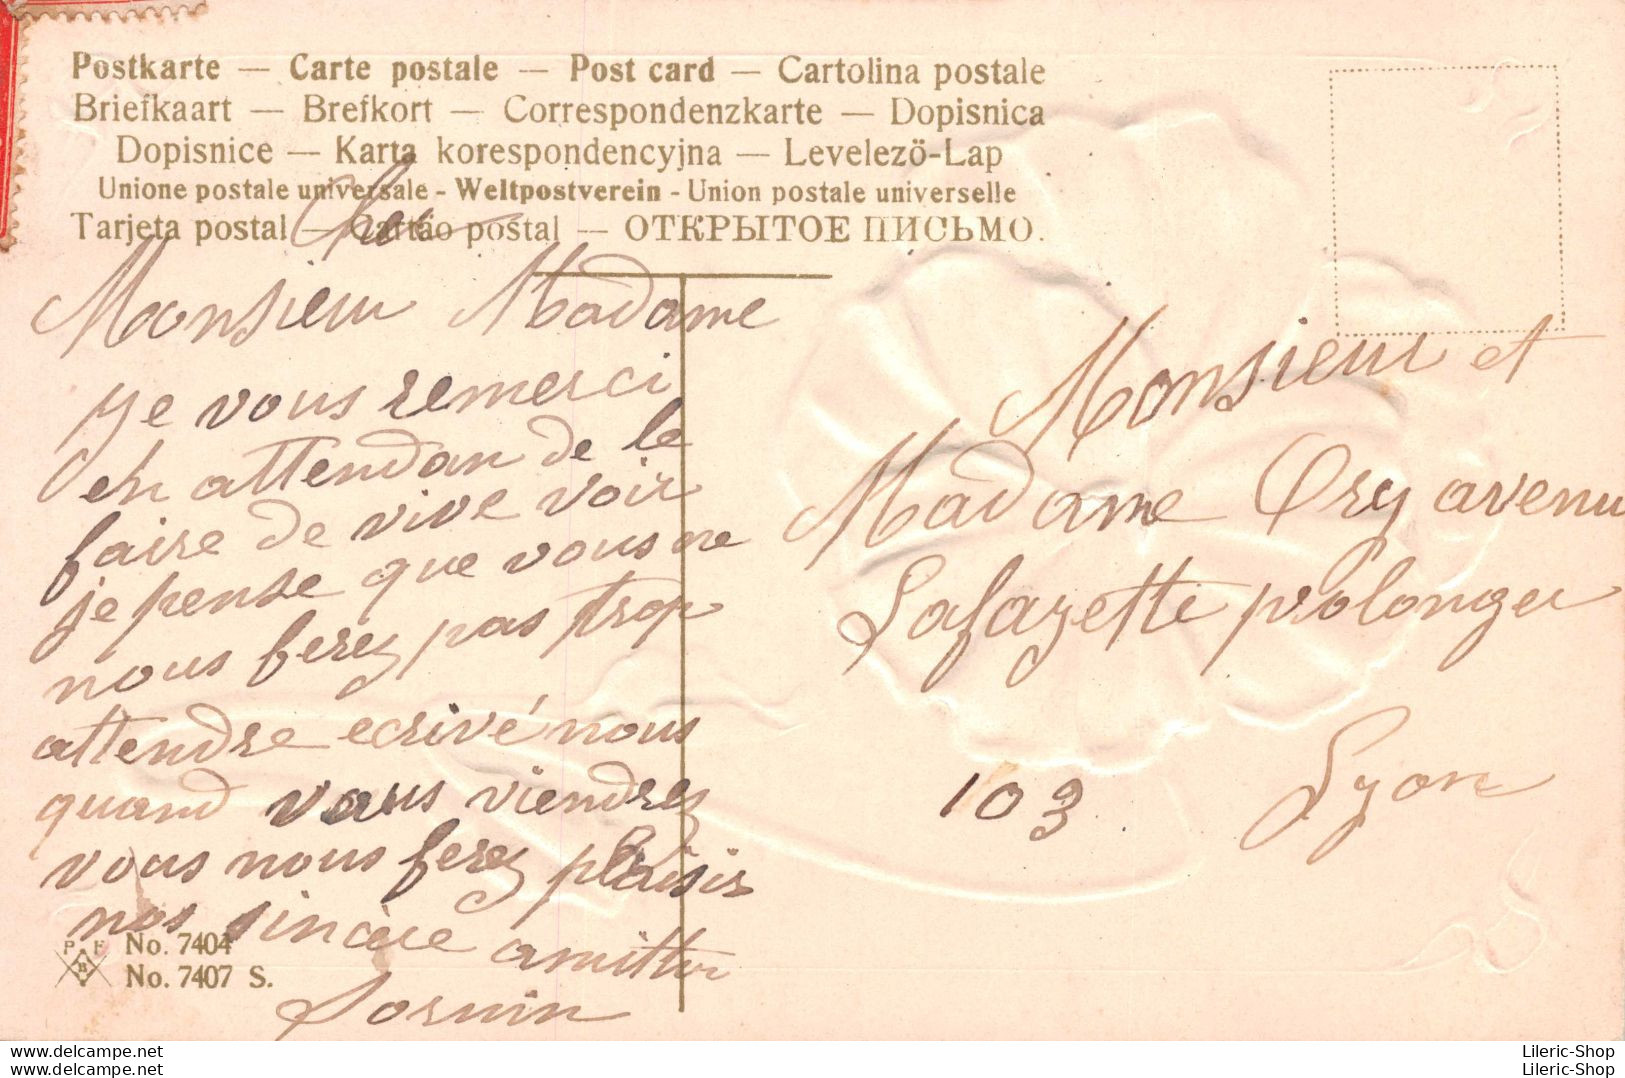 Postkarte — Carte postale — Post card — Cartolina postale
Briefkaart — Brefkort — Correspondenzkarte — Dopisnica
Dopisnice — Karta korespondencyjna — Levelezö-Lap
Unione postale universale - Weltpostverein - Union postale universelle
Tarjeta postal — Cartão postal — ОТКРЫТОЕ ПИСЬМО.
Monsieur Madame
Je vous remerci
en attendan de le
faire de vive voir
je pense que vous ne
nous ferez pas trop
attendre ecrivé nous
quand vous viendrez
vous nous ferez plaisir
nos sincère amitter
Monsieur et
Madame Ory avenu
Lafayette prolonger
103 Lyon
P F B
No. 7404
No. 7407 S.
Lileric-Shop
Lileric-Shop
Lileric-Shop
Lileric-Shop